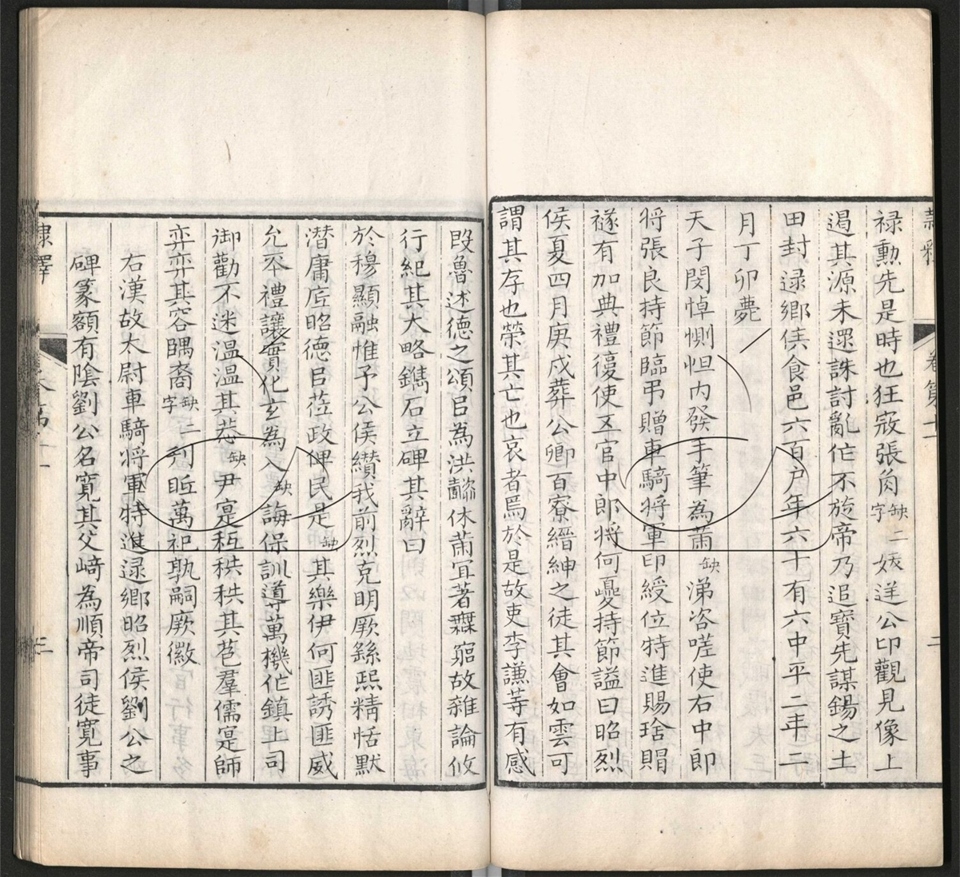 祿勲先是時也狂寇張角缺二字妖逆公卬觀見像上
遏其源未還誅討亂作不旋帝乃追寶先謀錫之土
田封逯鄉侯食邑六百户年六十有六中平二年二
月丁卯薨
天子閔悼惻怛内發手筆為蕳缺涕咨嗟使右中郎
將張良持節臨弔贈車騎將軍印綬位特進賜琀賵
襚有加典禮復使五官中郎將何憂持節謚曰昭烈
侯夏四月庚戍葬公卿百寮縉紳之徒其會如雲可
謂其存也榮其亡也哀者焉於是故吏李謙等有感
殷魯述德之頌㠯為洪懿休蕳宜著無窮故雜論攸
行紀其大略鐫石立碑其辭曰
於穆顯融惟予公侯纘我前烈克明厥繇熙精恬默
潜庸底昭德㠯莅政俾民是缺其樂伊何匪誘匪威
允夲禮讓實化玄為入缺誨保訓導萬機作鎮上司
御勸不迷温温其恭缺尹寔秖秩秩其苞羣儒寔師
弈弈其容隅裔缺二字刊眂萬祀孰嗣厥徽
右漢故太尉車騎將軍特進逯鄉昭烈侯劉公之
碑篆額有陰劉公名寛其父崎為順帝司徒寛事
隸釋
卷第十一
二
隸釋
卷第十一
三